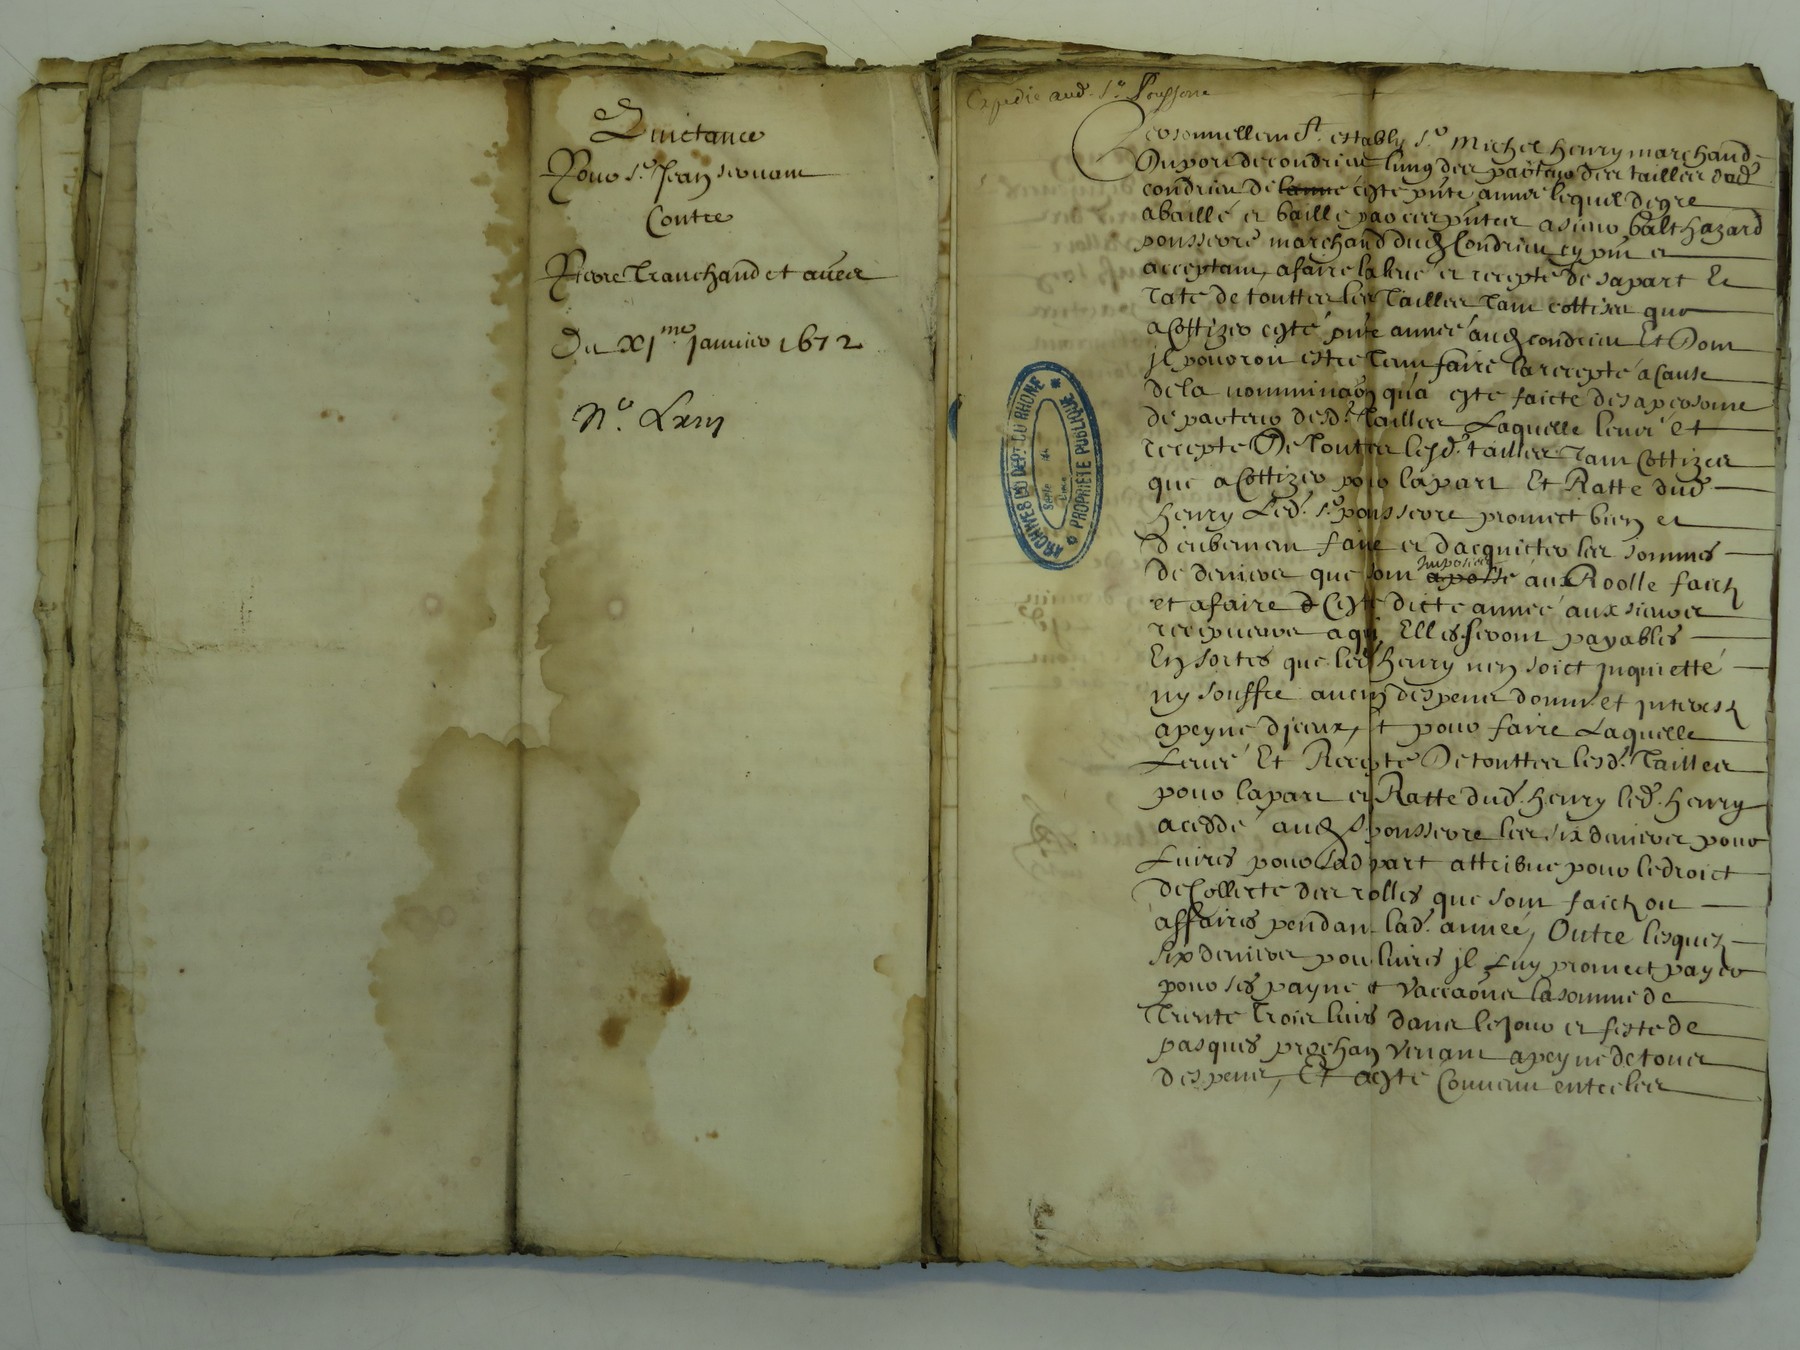 Quictance
Pour sr. Jean seruant
Contre
Pierre Tranchand et autres
Du xjme januier 1672
No. Lxiij
Expedié aud. sr. Poussere
Personnellemt. estably sr Michel henry marchand
Du port de condrieu lung des pacteurs des tailles dud
condrieu de lanne ceste pnte annee lequel de gre
a baillé et baille par ces pntes a sieur balthazard
pousserre marchand dud Condrieu cy pnt et
acceptant, a faire la leué et recepte de sa part Et
rate de touttes les Tailles Tant cottisez que
a Cottizer ceste pnte annee aud condrieu Et Dont
jl pouroit estre tenu faire la recepte a cause
de la nomminaon qua este faicte de sa personne
de pacteur desd. Tailles Laquelle leuré et
recepte De Touttes lesd. tailles Tant Cottizes
que a Cottizer pour la part Et Ratte dud
henry Led. sr. pousserre promect bien et
deubement faire et dacquicter les sommes
de deniers que sont imposées apossé aux Roolle faictz
et a faire Ceste dicte année aux sieurs
recepueurs a qui Elles seront payables
En sortes que led henry nen soict jnquietté
ny souffre aucuns despens domm. et jnterestz
a peyne djceux, et pour faire Laquelle
Leueé Et Recepte De touttes lesd. Tailles
pour la part et Ratte dud. henry led. henry
a ceddé aud s pousserre les six deniers pour
Liures pour sad part attribue pour le droict
de Collecte des rolles que sont faictz ou
affaires pendant lad. année, Outre lesquelz
six deniers pour liures jl Luy promect payer
pour ses payne et Vaccaons la somme de
Trente Trois liures dans le jour et feste de
pasques prochain Venant a peyne de tous
despens, Et a este Conuenu entre les
ARCHIVES DU DEPT. DU RHONE
PROPRIETE PUBLIQUE